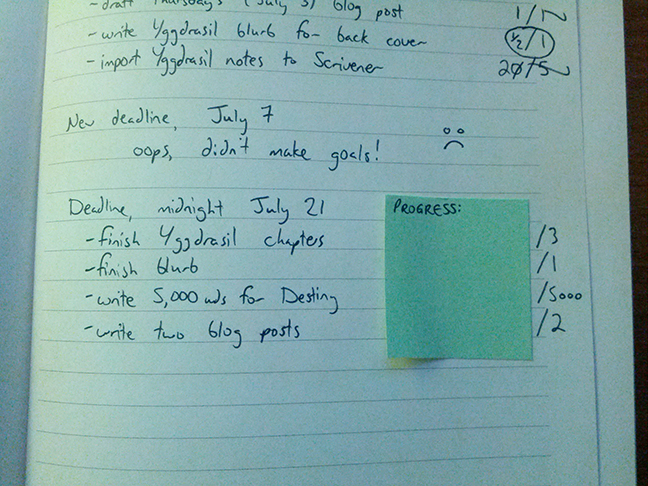 -draft Thursday's (July 3) blog post 1/1
-write Yggdrasil blurb for back cover ½/1
-import Yggdrasil notes to Scrivener 20/5
New deadline, July 7
oops, didn't make goals!
Deadline, midnight July 21
PROGRESS:
-finish Yggdrasil chapters /3
-finish blurb /1
-write 5,000 wds for Destiny /5000
-write two blog posts /2